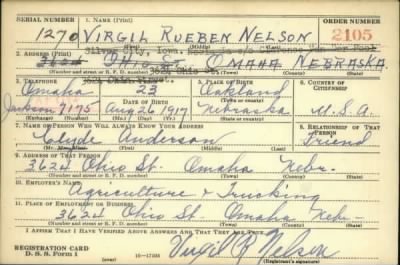 SERIAL NUMBER 1. NAME (Print) ORDER NUMBER
1270 VIRGIL RUEBEN NELSON 2105
2. ADDRESS (Print)
3624 OHIO ST. OMAHA NEBRASKA
(Number and street or R. F. D. number) (Town) (County) (State)
3. TELEPHONE 4. AGE IN YEARS 5. PLACE OF BIRTH 6. COUNTRY OF CITIZENSHIP
Omaha 23 Oakland
DATE OF BIRTH
Jackson 7175 Aug 26 1917 Nebraska U.S.A.
(Exchange) (Number) (Mo.) (Day) (Yr.) (State or country)
7. NAME OF PERSON WHO WILL ALWAYS KNOW YOUR ADDRESS 8. RELATIONSHIP OF THAT PERSON
Clyde Anderson Friend
9. ADDRESS OF THAT PERSON
3624 Ohio St. Omaha Nebr.
(Number and street or R. F. D. number) (Town) (County) (State)
10. EMPLOYER'S NAME
Agriculture & Trucking
11. PLACE OF EMPLOYMENT OR BUSINESS
3624 Ohio St. Omaha Nebr.
(Number and street or R. F. D. number) (Town) (County) (State)
I AFFIRM THAT I HAVE VERIFIED ABOVE ANSWERS AND THAT THEY ARE TRUE.
REGISTRATION CARD
D. S. S. Form 1 Virgil R. Nelson
(Registrant's signature)